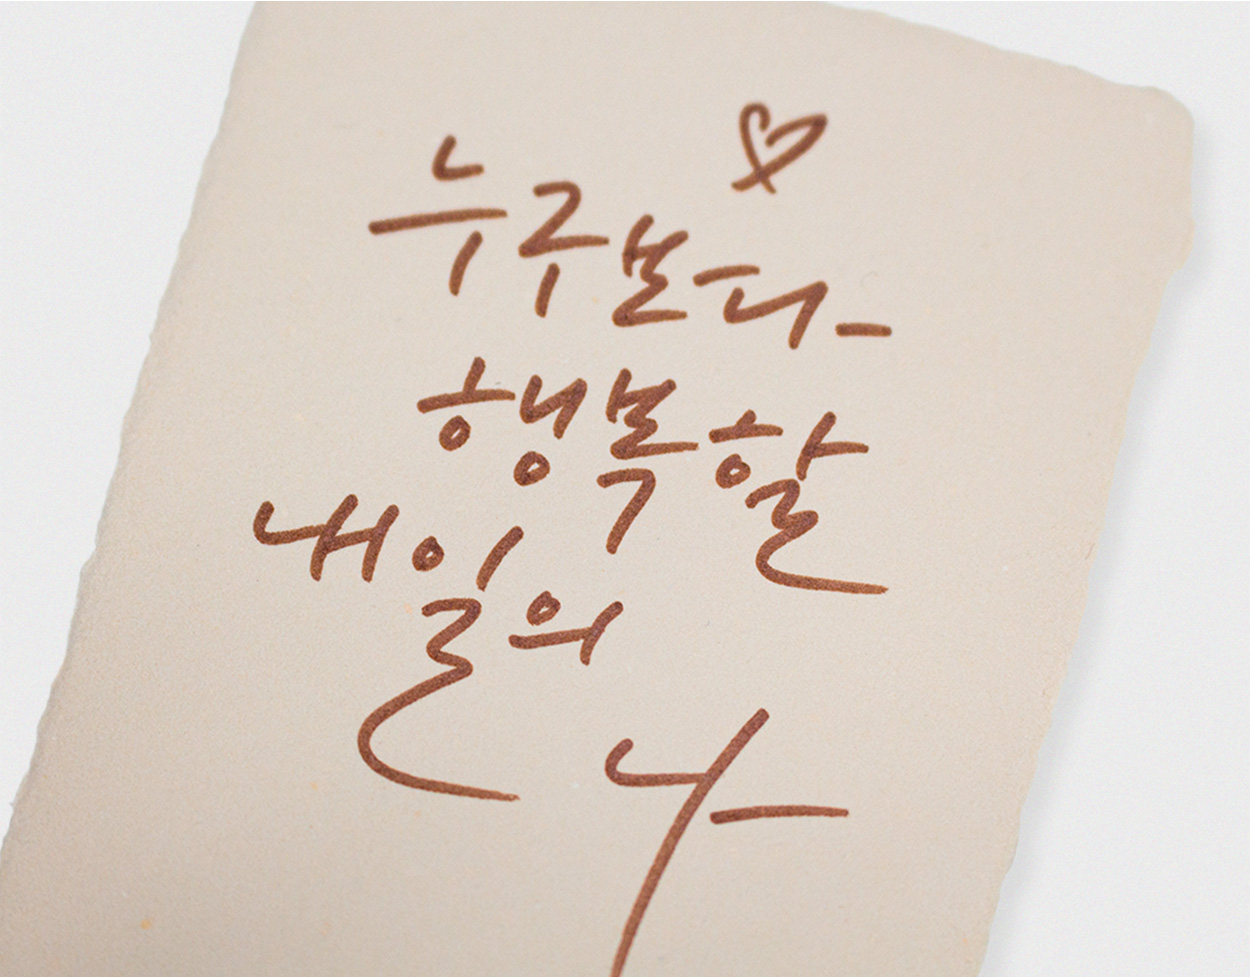 누구보다
행복할
내일의
나